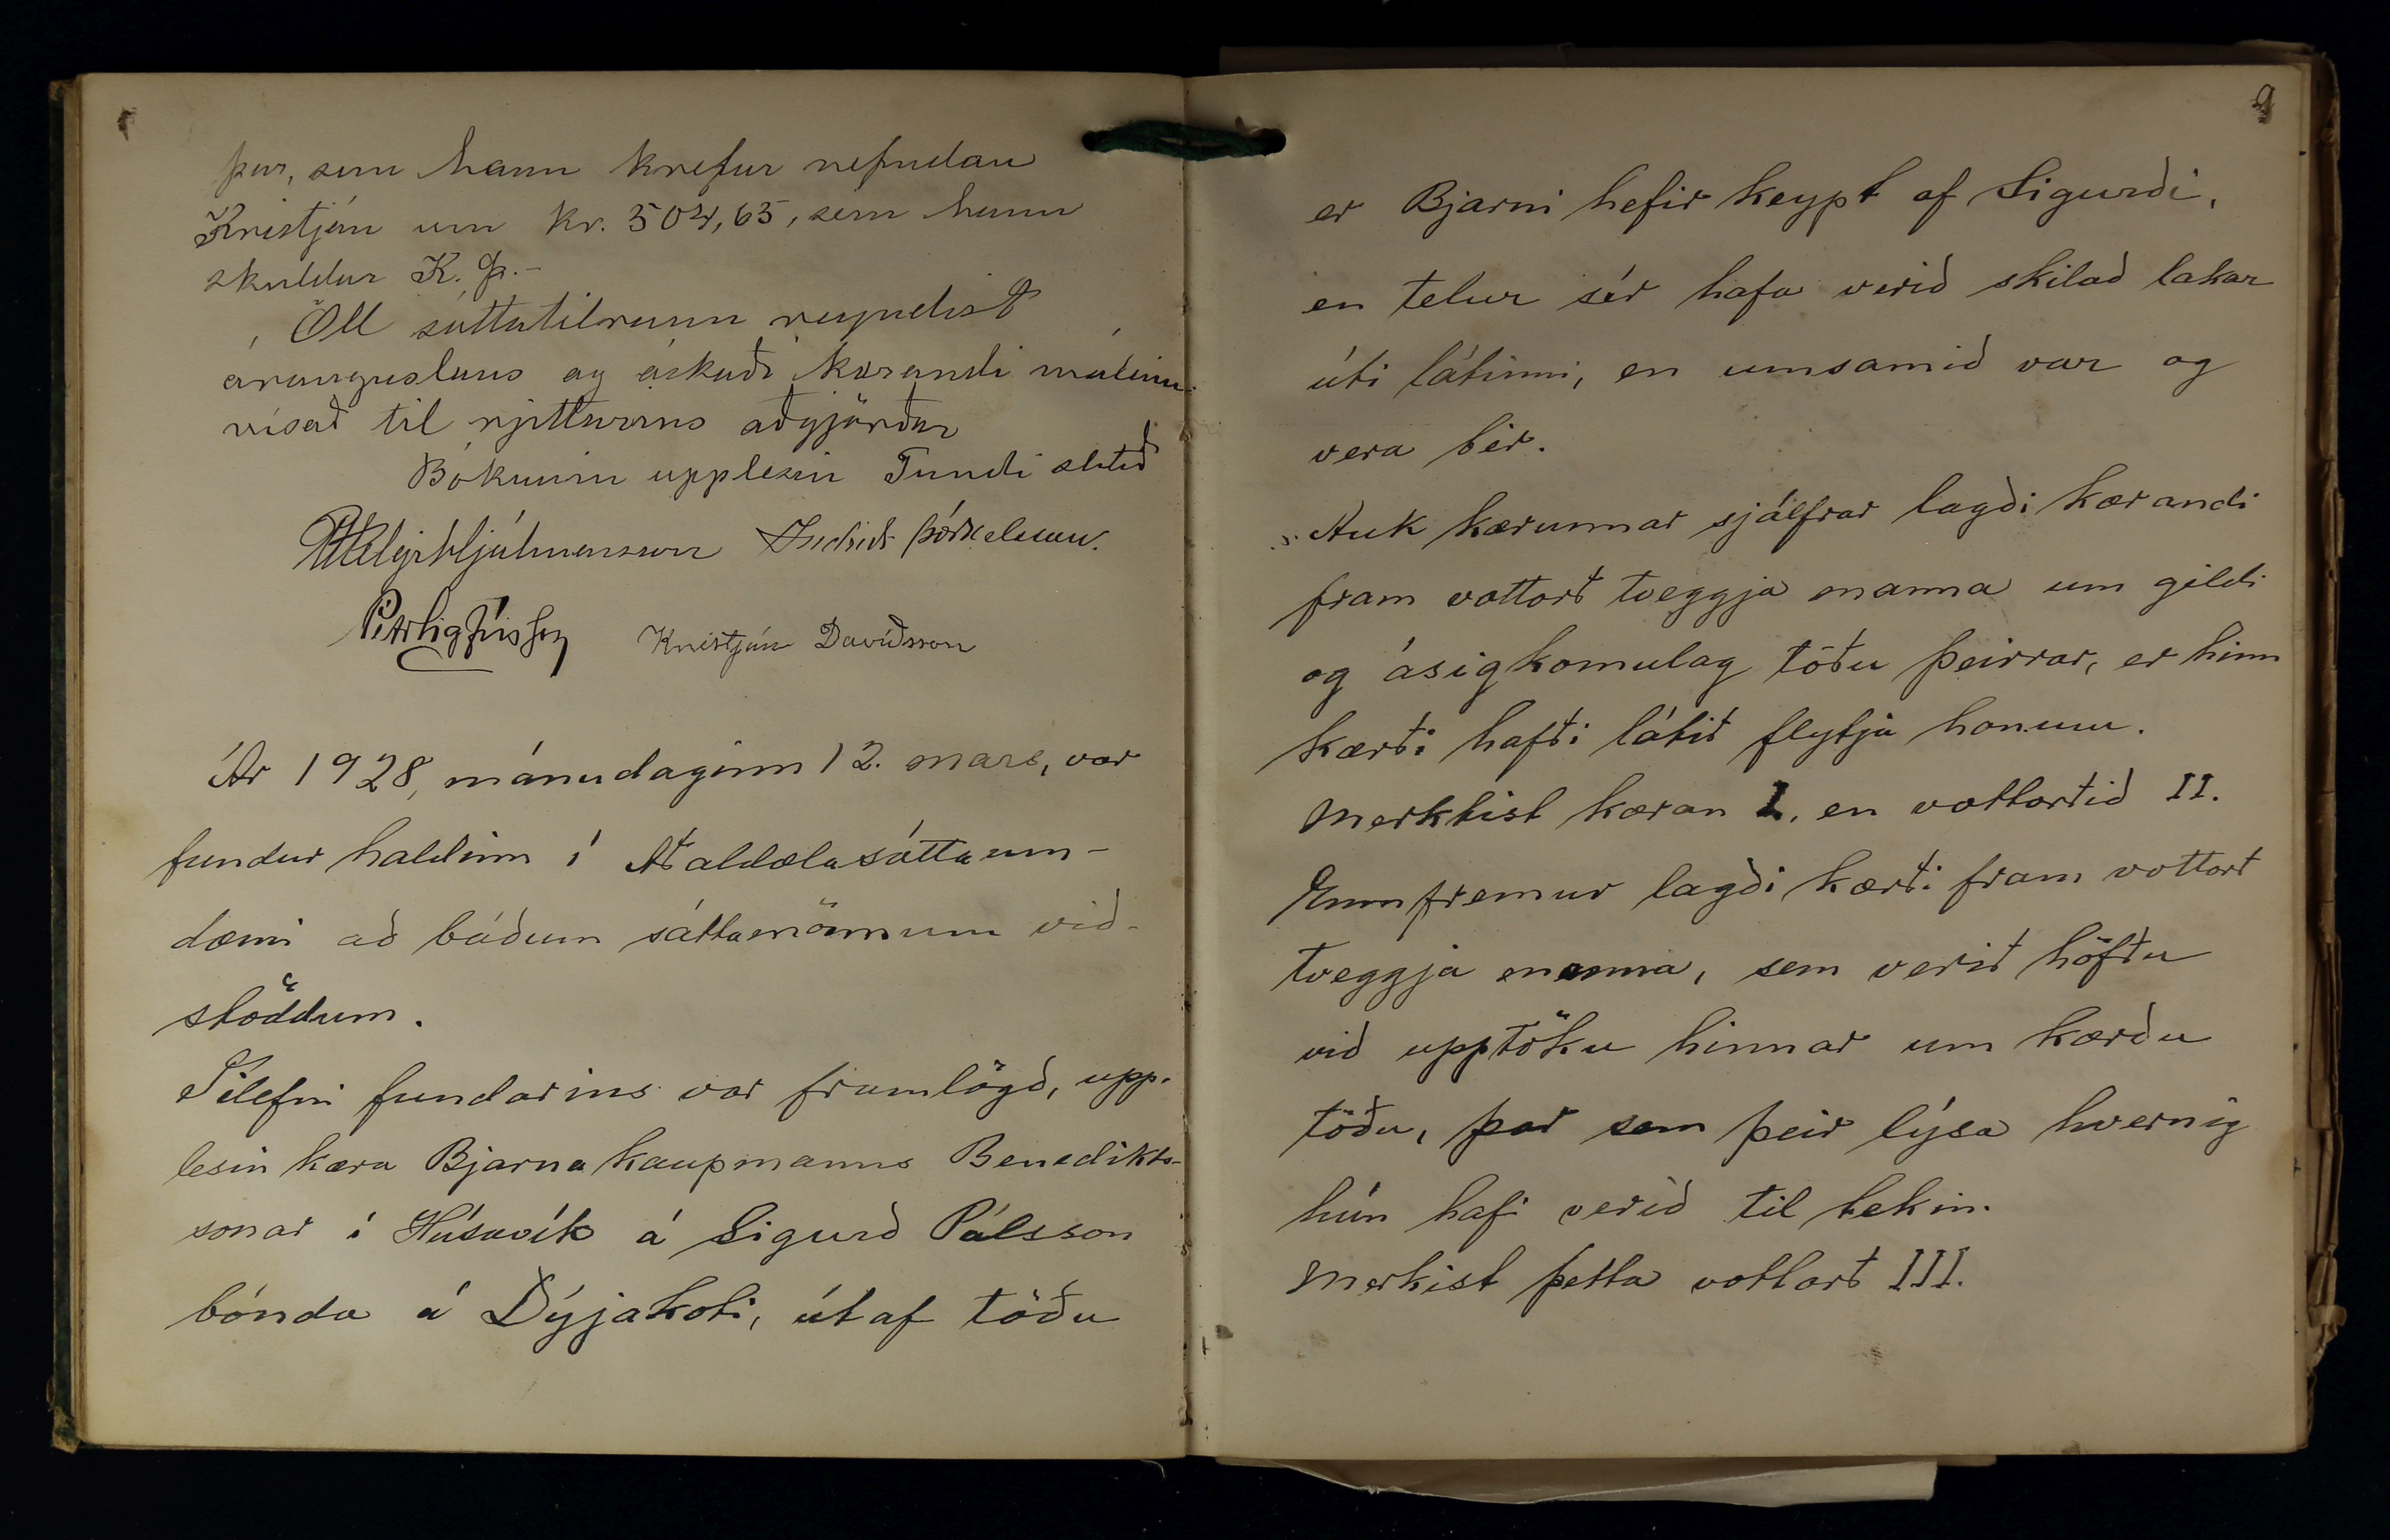 þar, sem hann krefur nefndan
Kristján um kr. 504,65, sem hann
skuldar K. Þ.-
Öll sáttatilraun reyndist
árangurslaus og óskaði kærandi málinu
vísað til rjettarins aðgjörðar
Bókunin upplesin Fundi slitið
Helgi Hjálmarsson Indriði Þórkelsson.
Pétur Sigfússon Kristján Davíðsson
Ár 1928, mánudaginn 12. mars, var
fundur haldinn í Aðaldæla sáttaum-
dæmi að báðum sáttamönnum við-
stöddum.
Tilefni fundarins var framlögð, upp-
lesin kæra Bjarna kaupmanns Benedikts-
sonar í Húsavík á Sigurð Pálsson
bónda á Dýjakoti, útaf töðu
9
er Bjarni hefir keypt af Sigurði,
en telur sér hafa verið skilað lakar
úti látinni, en umsamið var og
vera bér.
Auk kærunnar sjálfrar lagði kærandi
fram vottorð tveggja manna um gildi
og ásigkomulag töðu þeirrar, er hinn
kærði hafði látið flytja honum.
Merktist kæran I, en vottorðið II.
Ennfremur lagði kærði fram vottorð
tveggja manna, sem verið höfðu
við upptöku hinnar um kærðu
töðu, þar sem þeir lýsa hvernig
hún hafi verið til tekin.
Merkist þetta vottorð III.